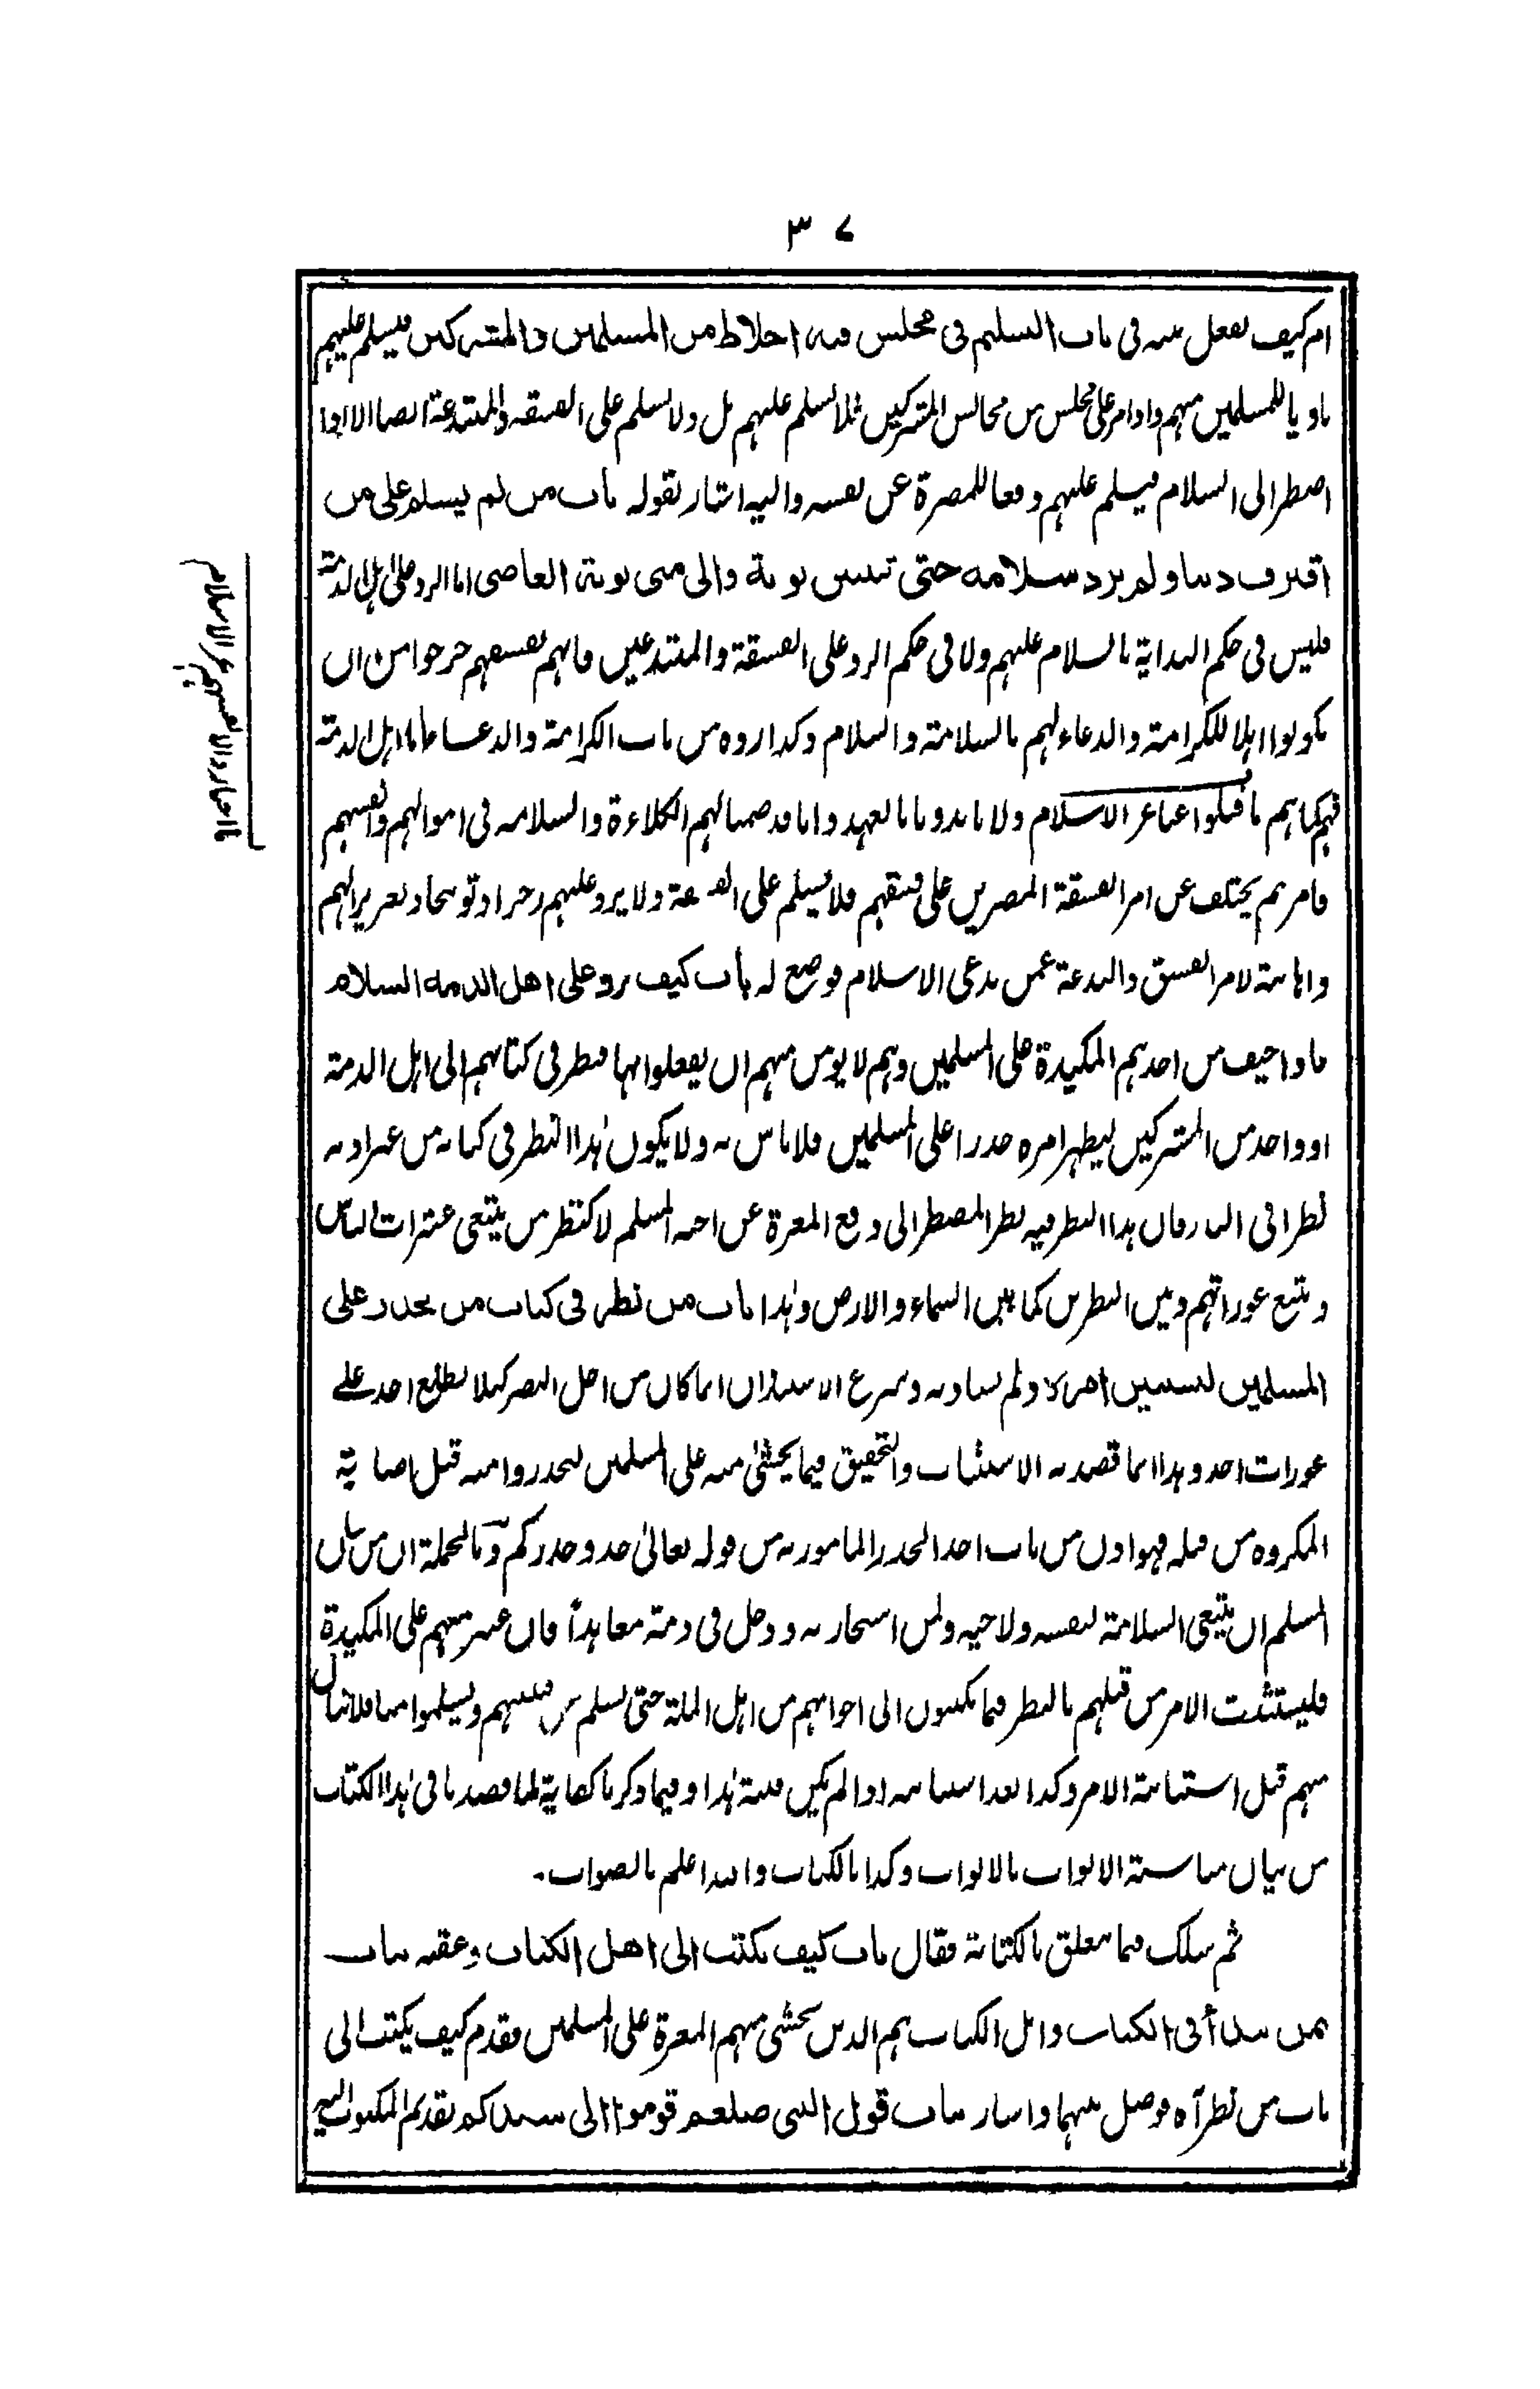 ٣٧
ام كيف يفعل بينه فى باب التسليم فى مجلس فيه اخلاط من المسلمين والمشركين فيسلم عليهم
ناويا للمسلمين منهم واذا مر على مجلس من مجالس المشركين فلا يسلم عليهم بل ولا يسلم على الفسقة والمبتدعة ايضا الا اذا
اضطر الى السلام فيسلم عليهم دفعا للمضرة عن نفسه واليه اشار بقوله باب من لم يسلم على من
اقترف ذنبا ولم يرد سلامه حتى تتبين توبته والى متى توبة العاصى اما الرد على اهل الذمة
فليس فى حكم البداية بالسلام عليهم ولا فى حكم الرد على الفسقة والمبتدعين فانهم بفسقهم خرجوا من ان
يكونوا اهلا للكرامة والدعاء لهم بالسلامة والسلام وكذا ردوه من باب الكرامة والدعاء فاما اهل الذمة
فهم كما هم ما قبلوا عنا عز الاسلام ولا نابذونا بالعهد وانا قد ضمنا لهم الكلاءة والسلامة فى اموالهم وانفسهم
فامرهم يختلف عن امر الفسقة المصرين على فسقهم فلا يسلم على الفسقة ولا يرد عليهم زجرا وتوبيخا وتعزيرا لهم
واهانة لامر الفسق والبدعة عمن يدعى الاسلام فوضع له باب كيف يرد على اهل الذمة السلام
فاذا خيف من احدهم المكيدة على المسلمين وهم لا يؤمن منهم ان يفعلوا بها فنظر فى كتابهم الى اهل الذمة
او واحد من المشركين ليظهر امره حذرا على المسلمين فلا باس به ولا يكون هذا النظر فى كتابه من غير اذنه
نظرا فى النار فان هذا النظر فيه نظر المضطر الى دفع المعرة عن اخيه المسلم لا كنظر من يبتغى عثرات الناس
ويتبع عوراتهم وبين النظرين كما بين السماء والارض وهذا باب من نظر فى كتاب من يحذر على
المسلمين ليستبين امره ولم يناد به وشرع الاستيذان انما كان من اجل البصر كيلا يطلع احد على
عورات احد وهذا انما قصد به الاستثبات والتحقيق فيما يخشى منه على المسلمين ليحذروا منه قبل اصابة
المكروه من قبله فهو اذن من باب اخذ الحذر المامور به من قوله تعالى خذوا حذركم وبالجملة ان من شان
المسلم ان يبتغى السلامة لنفسه ولاخيه ولمن استجار به ودخل فى ذمته معاهداً فان عثر منهم على المكيدة
فليستثبت الامر من قبلهم بالنظر فيما يكتبون الى اخوانهم من اهل الملة حتى نسلم من فتنتهم ويسلموا منا فلا ننال
منهم قبل استبانة الامر وكذا بعد استبانته اذا لم يكن فتنة هذا وفيما ذكرنا كفاية لما قصدنا فى هذا الكتاب
من بيان مناسبة الابواب بالابواب وكذا بالكتاب والله اعلم بالصواب۔
ثم سلك فيما يتعلق بالكتابة فقال باب كيف يكتب الى اهل الكتاب وعقبه بباب
بمن يبدأ فى الكتاب واهل الكتاب هم الذين يخشى منهم المعرة على المسلمين فقدم كيف يكتب الى
باب من نظر آه فوصل بينهما واشار بباب قول النبى صلعم قوموا الى سيدكم بتقديم المكتوب اليه